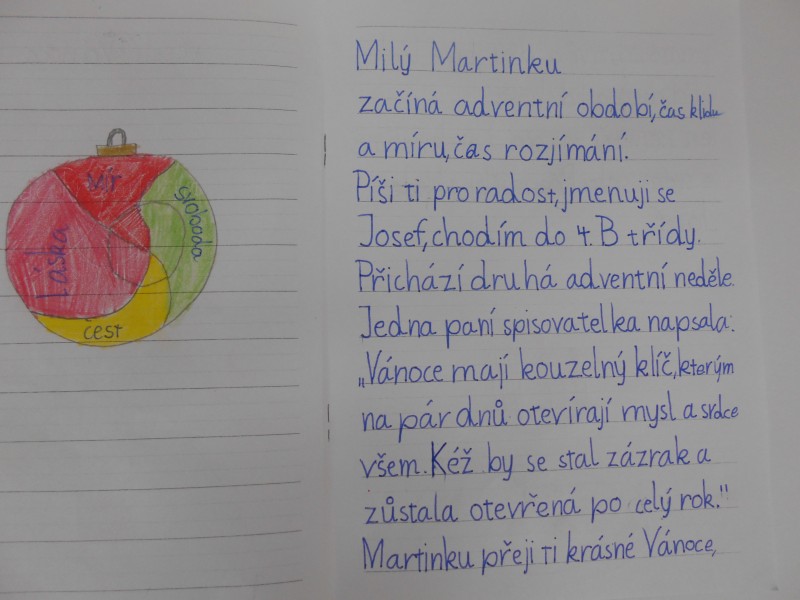 mír
svoboda
Láska
čest
Milý Martinku
začíná adventní období, čas klidu
a míru, čas rozjímání.
Píši ti pro radost, jmenuji se
Josef, chodím do 4. B třídy.
Přichází druhá adventní neděle.
Jedna paní spisovatelka napsala:
„Vánoce mají kouzelný klíč, kterým
na pár dnů otevírají mysl a srdce
všem. Kéž by se stal zázrak a
zůstala otevřená po celý rok."
Martinku přeji ti krásné Vánoce,